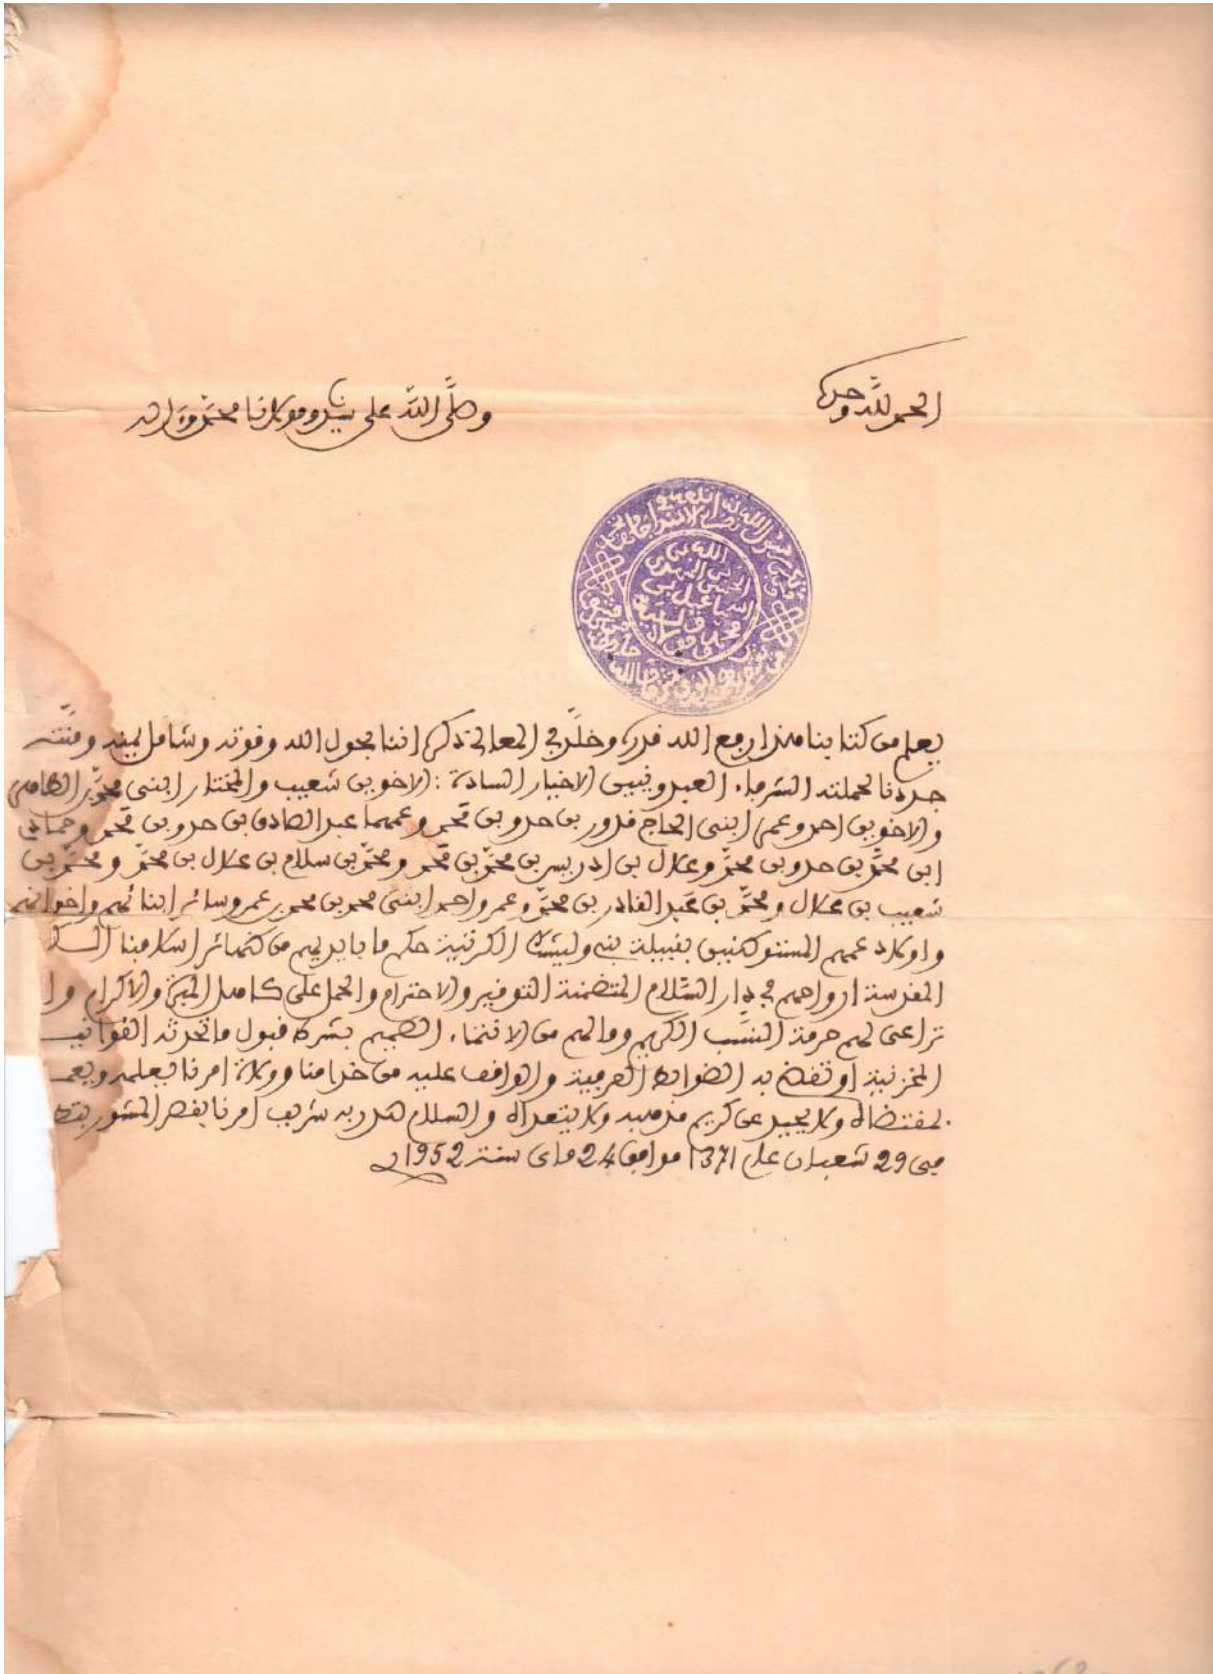 الحمد لله وحده
وصلى الله على سيدنا ومولانا محمد وآله
يعلم من كتابنا هذا رفع الله قدره وخلد في المعالي ذكره اننا بحول الله وقوته وشامل يمنه ومنته
جددنا لحملته الشرفاء العبدونيين الاخيار السادة : الاخوين شعيب والمختار ابني محمد الطاهر
والاخوين احمد وعمر ابني الحاج قدور بن حدو بن محمد وعمهما عبد الصادق بن حدو بن محمد وحمادي
ابن محمد بن حدو بن محمد وعلال بن ادريس بن محمد بن محمد ومحمد بن سلام بن علال بن محمد ومحمد بن
شعيب بن علال ومحمد بن عبد القادر بن محمد وعمر واحمد ابني محمد بن محمد بن عمر وسائر ابنائهم واخوانهم
واولاد عمهم المستوطنين بقبيلة بني وليشك الگرتية حكم ما بايديهم من ظهائر اسلافنا
المقدسة ارواحهم في دار السلام المتضمنة التوقير والاحترام والحمل على كاهل المبرة والاكرام
تراعى لهم حرمة النسب الكريم وما لهم من الانتماء الصميم بشرط قبول ما تحدثه القوانيـ
المخزنية او تقضي به الضوابط العرفية والواقف عليه من خدامنا وولاة امرنا يعلمه ويعمـ
بمقتضاه ولا يحيد عن كريم مذهبه ولا يتعداه والسلام صدر به شريف امرنا بقصر المشور
في 29 شعبان عام 1371 موافق 24 ماي سنة 1952
الله بن
اسماعيل بن
محمد